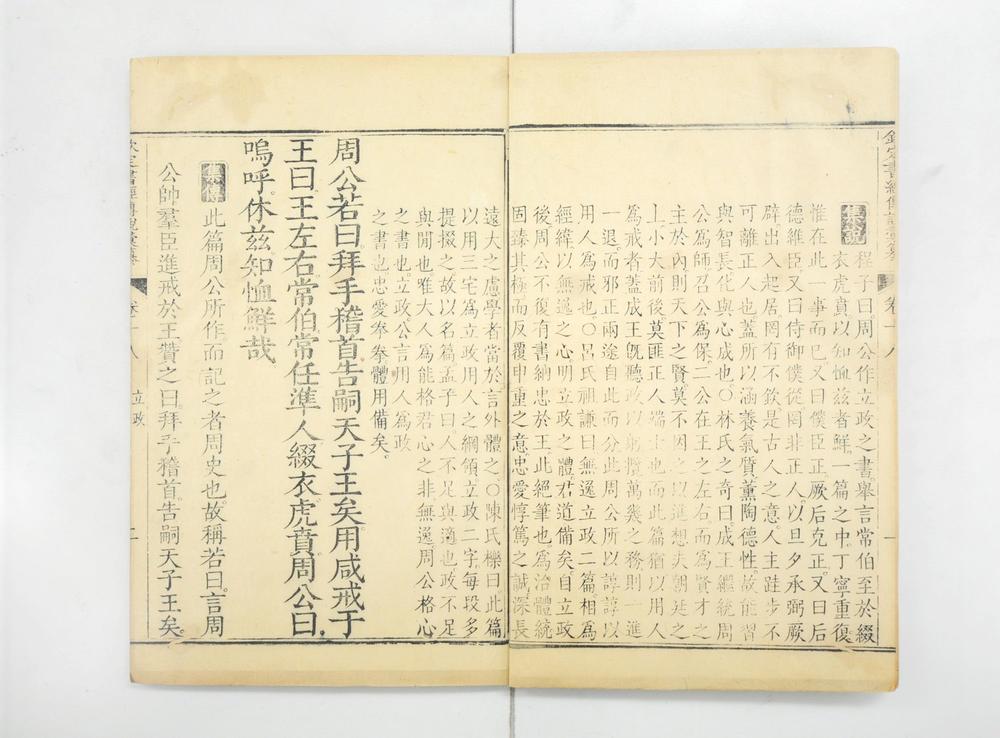 欽定書經傳說彙纂 卷十八 一
集說 程子曰。周公作立政之書。舉言常伯至於綴
衣虎賁以知恤茲者鮮。一篇之中。丁寧重復
惟在此一事而已。又曰僕臣正厥后克正。又曰后
德維臣。又曰侍御僕從罔非正人。以旦夕承弼厥
辟。出入起居罔有不欽。是古人之意。人主跬步不
可離正人也。蓋所以涵養氣質。薰陶德性。故能習
與智長。化與心成也。○林氏之奇曰。成王繼統。周
公為師。召公為保。二公在王之左右。而為賢才之
主於內。則天下之賢。莫不因之以進。想夫朝廷之
上。小大前後。莫匪正人端士也。而此篇猶以用人
為戒者。蓋成王旣聽政。以躬攬萬幾之務。則一進
一退而邪正兩途自此而分。此周公所以諄諄以
用人為戒也。○呂氏祖謙曰。無逸立政二篇。相為
經緯。以無逸之心。明立政之體。君道備矣。自立政
後。周公不復有書。納忠於王。此絕筆也。為治體統
固臻其極。而反覆申重之意。忠愛惇篤之誠。深長
遠大之慮。學者當於言外體之。○陳氏櫟曰。此篇
以用三宅為立政用人之綱領。立政二字。每段多
提掇之。故以名篇。孟子曰。人不足與適也。政不足
與閒也。唯大人為能格君心之非。無逸周公格心
之書也。立政。公言用人為政
之書也。忠愛拳拳。體用備矣。
周公若曰。拜手稽首。告嗣天子王矣。用咸戒于
王曰。王左右常伯。常任。準人。綴衣。虎賁。周公曰。
嗚呼。休茲。知恤鮮哉。
集傳 此篇周公所作。而記之者周史也。故稱若曰。言周
公帥羣臣進戒於王。贊之曰。拜手稽首。告嗣天子王矣。
欽定書經傳說彙纂 卷十八 立政 二